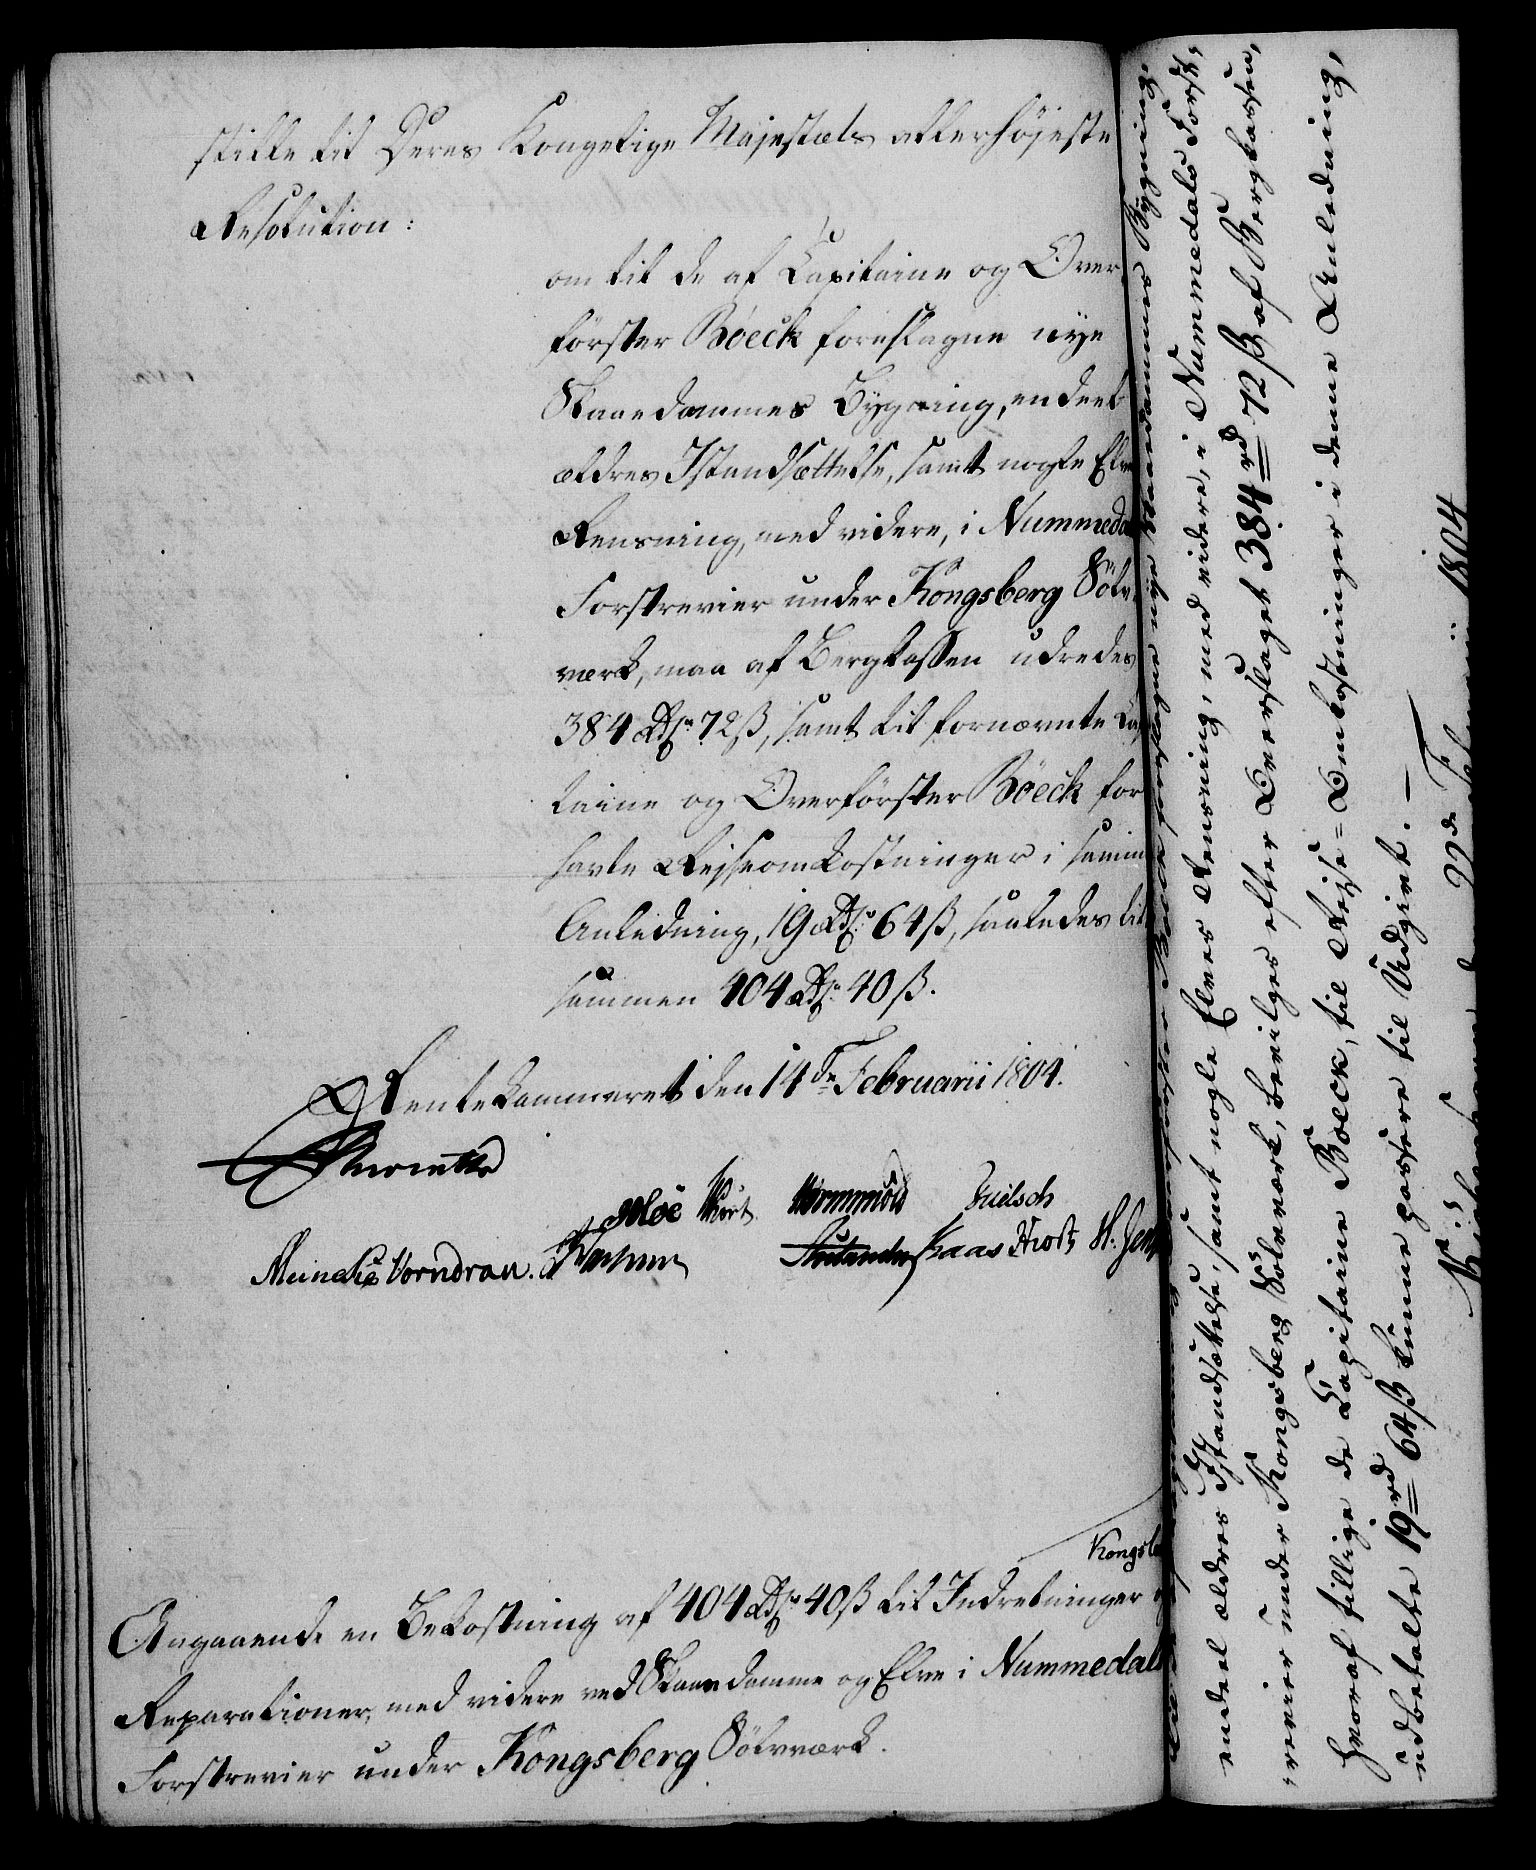 stille til Deres Kongelige Majestæts allerhøjeste
Resolution:
om til de af Capitaine og Over,
förster Böeck foreslagne nye
Skaaedammes Bygning, endeel
ældres Istandsættelse, samt nogle Elve
Rensning, med videre, i Nummeda
Forstrevier under Kongsberg Sölv,
værk, maa af Bergkassen udredes
384 Rdr 72 ß, samt til fornævnte Ca
taine og Overförster Böeck for
havte Rejseomkostninger i samme
Anledning, 19 Rdr 64 ß, saaledes til
sammen 404 Rdr 40 ß.
Rentekammeret den 14de Februarii 1804.
Meincke Vorndran.
Kaas
Angaaende en Bekostning af 404 Rdr 40 ß til Indretninger
Kongsbe
Reparationer, med videre ved Skaaedamme og Elve i Nummedals
Forstrevier under Kongsberg Sölvværk.
foreslagne nye Skaaedammes Bygning,
endeel ældres Istandsættelse, samt nogle Elves Rensning, med videre, i Nummedals Forst,
revier under Kongsberg Sölvværk, bevilges efter Overslaget 384 rd 72 ß af Bergkassen,
hvoraf tillige de Capitaine Böeck, til Rejse-Omkostninger i denne Anledning,
udbetalte 19 rd 64 ß kunne passere til Udgivt. —
den 22de Februarii 1804